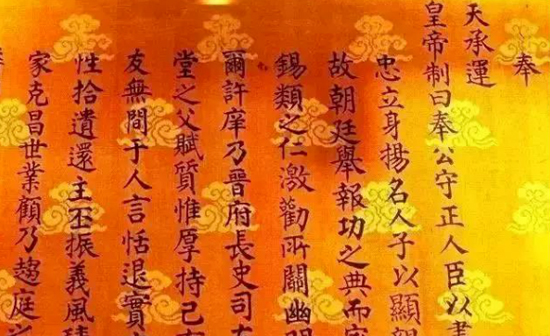 奉
天承運
皇帝制曰奉公守正人臣以盡
忠立身揚名人子以顯親
故朝廷舉報功之典而
錫類之仁激勸所關幽明
爾許庠乃晉府長史司
堂之父賦質惟厚持己
友無間于人言恬退實
性拾遺還主丕振義風
家克昌世業顧乃趨庭之